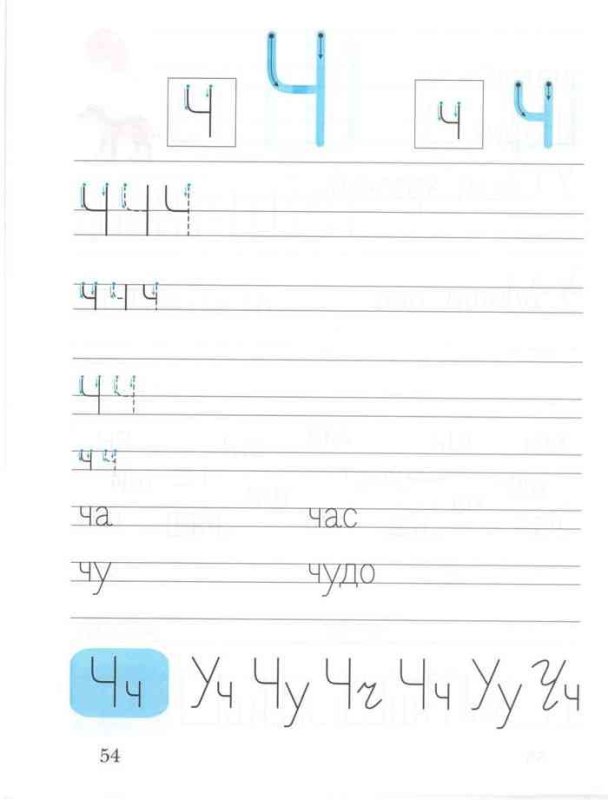 Ч ч
Ч Ч Ч
ч ч ч
Ч Ч
ч ч
ча час
чу чудо
Чч Уч Чу Чч Чч Уу Уч
54